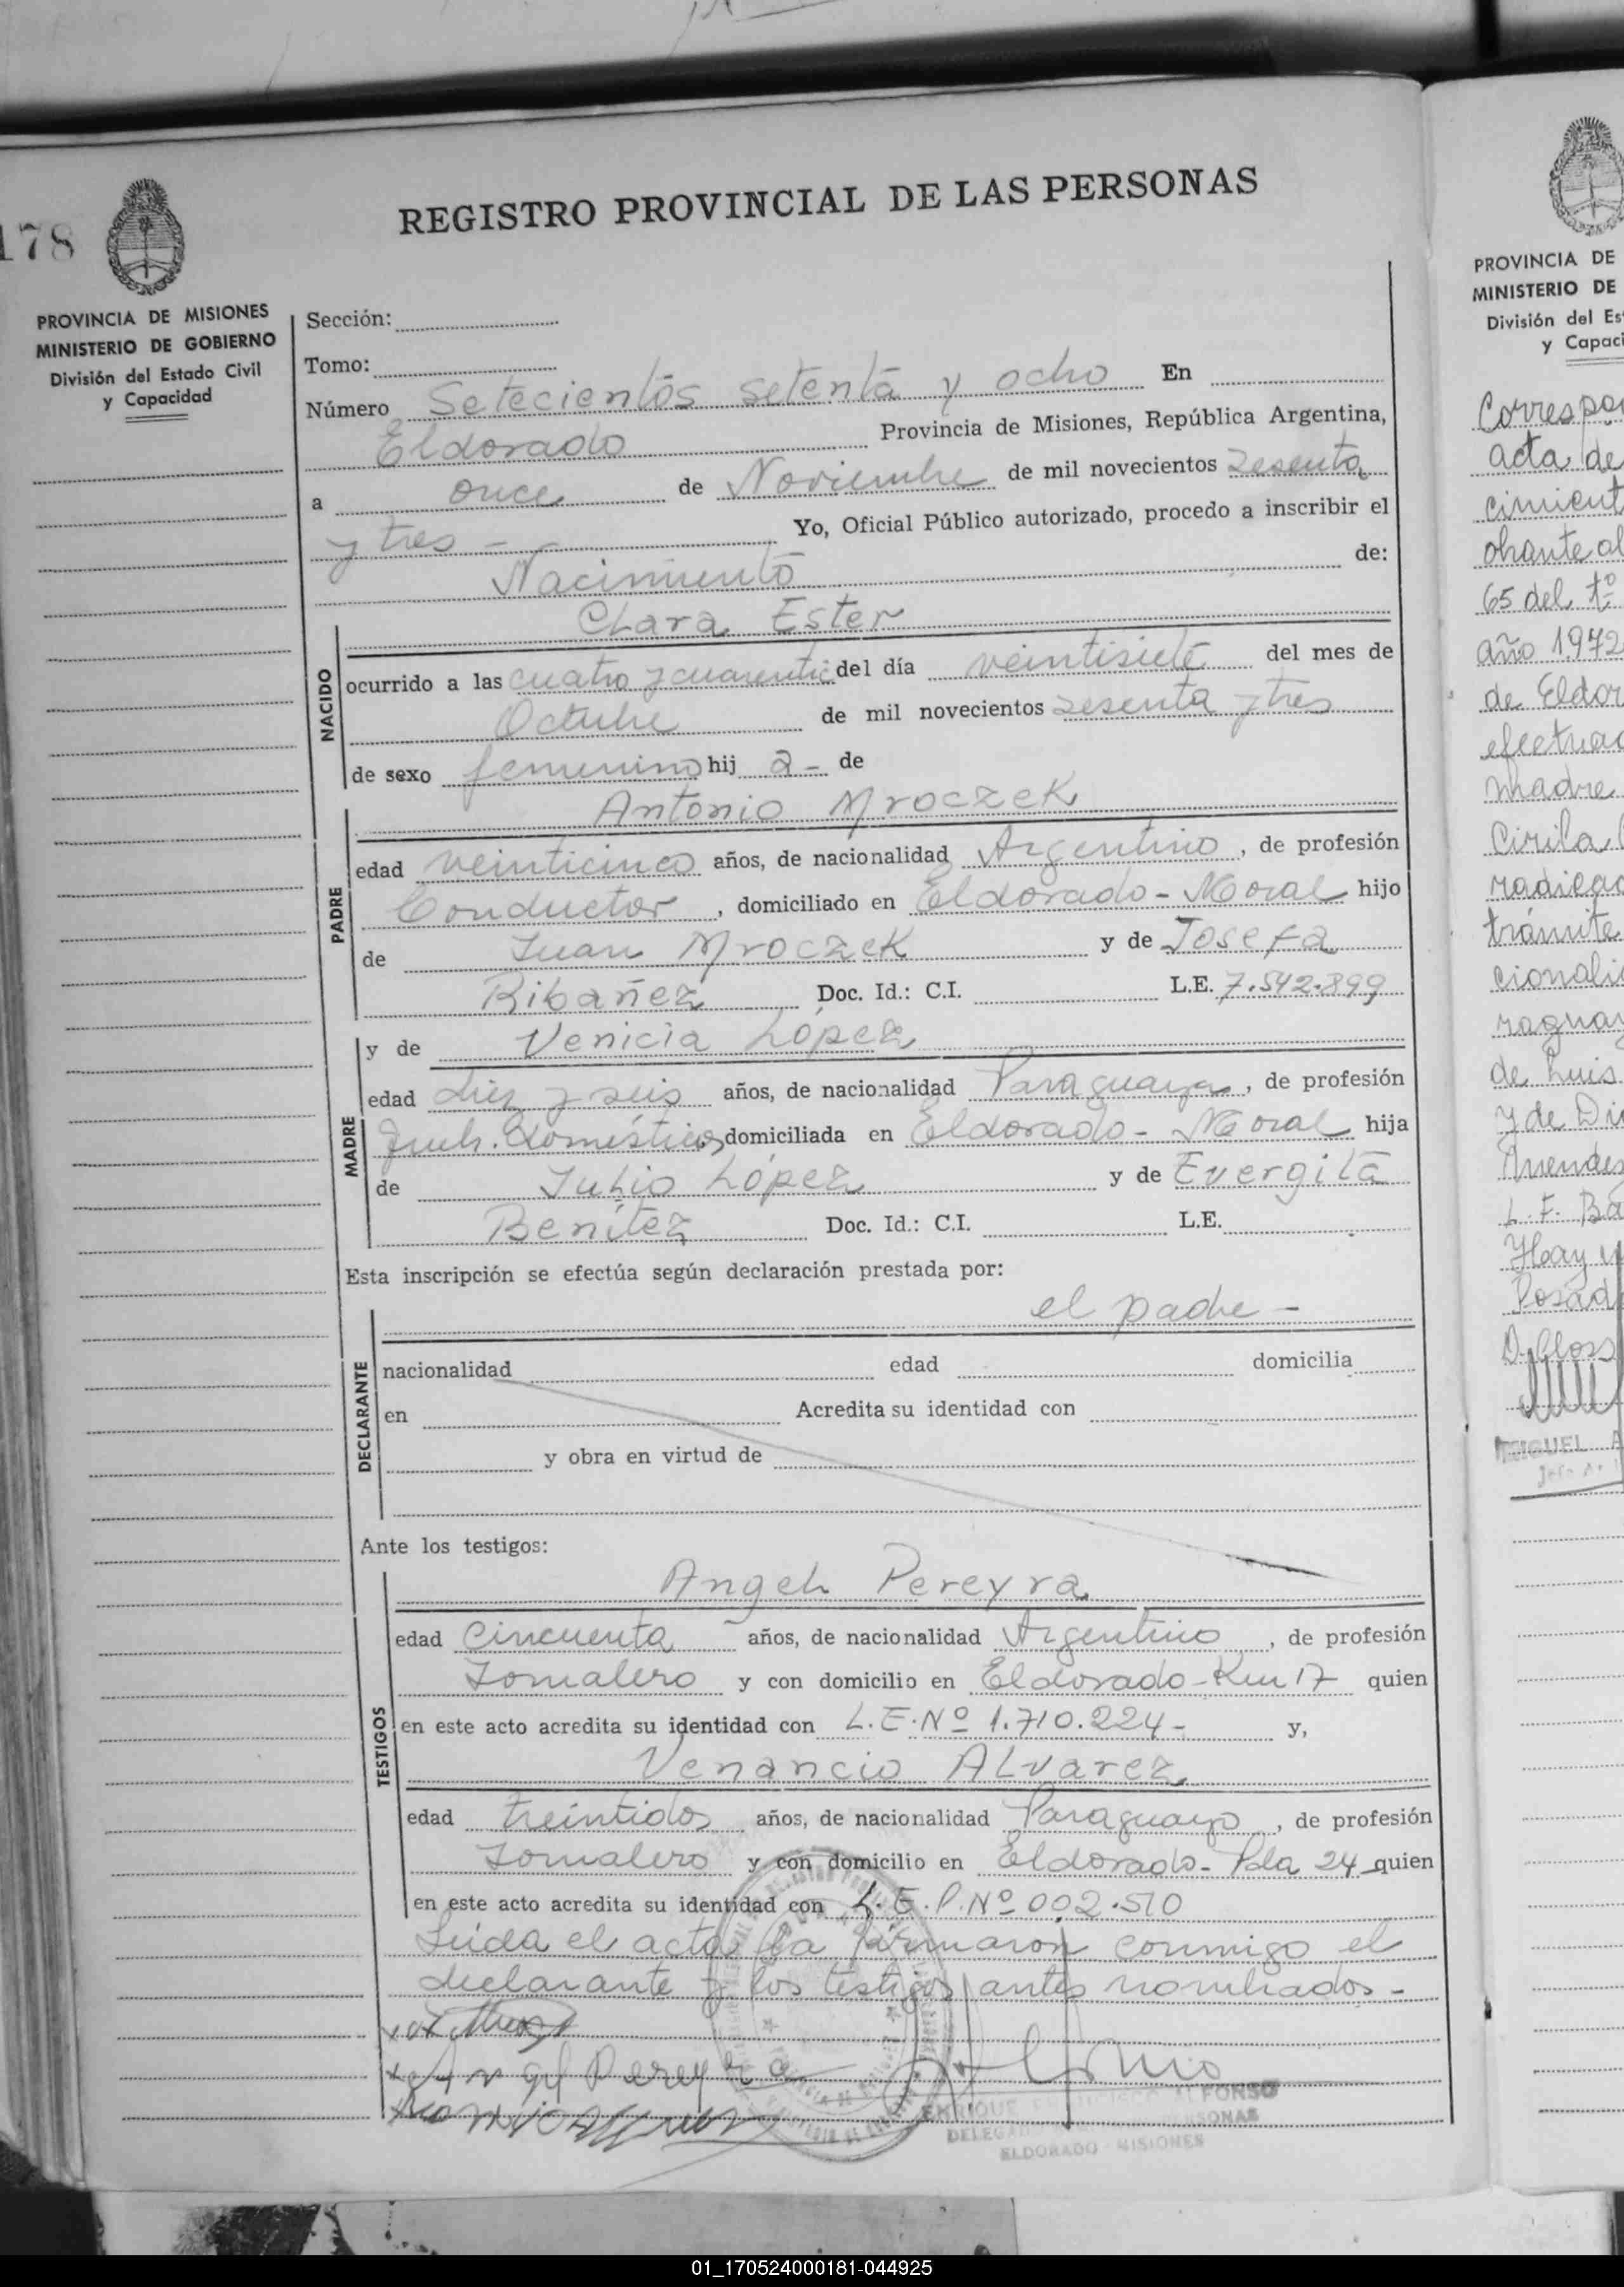 178
REGISTRO PROVINCIAL DE LAS PERSONAS
PROVINCIA DE MISIONES
MINISTERIO DE GOBIERNO
División del Estado Civil
y Capacidad
Sección:
Tomo:
Número Setecientos setenta y ocho En
Eldorado Provincia de Misiones, República Argentina,
a once de Noviembre de mil novecientos sesenta
y tres - Yo, Oficial Público autorizado, procedo a inscribir el
Nacimiento de:
Clara Ester
NACIDO
ocurrido a las cuatro y cuarenta del día veintisiete del mes de
Octubre de mil novecientos sesenta y tres
de sexo femenino hij a - de
Antonio Mroczek
PADRE
edad veinticinco años, de nacionalidad Argentino, de profesión
Conductor, domiciliado en Eldorado - Moral hijo
de Juan Mroczek y de Josefa
Ribañez Doc. Id.: C.I. L.E. 7.542.899
y de Venicia López
MADRE
edad diez y seis años, de nacionalidad Paraguaya, de profesión
domésticos domiciliada en Eldorado - Moral hija
de Julio López y de Evergita
Benítez Doc. Id.: C.I. L.E.
Esta inscripción se efectúa según declaración prestada por:
el padre -
DECLARANTE
nacionalidad edad domicilia
en Acredita su identidad con
y obra en virtud de
Ante los testigos:
Angel Pereyra
TESTIGOS
edad Cincuenta años, de nacionalidad Argentino, de profesión
Jornalero y con domicilio en Eldorado - Km 17 quien
en este acto acredita su identidad con L.E. Nº 1.710.224 - y,
Venancio Alvarez
edad treintidos años, de nacionalidad Paraguayo, de profesión
Jornalero y con domicilio en Eldorado - Pda 24 quien
en este acto acredita su identidad con L.E.P. Nº 002.510
Leída el acta la firmaron conmigo el
declarante y los testigos antes nombrados -
Angel Pereyra
ENRIQUE ALFONSO
PERSONAS
ELDORADO - MISIONES
PROVINCIA DE
MINISTERIO DE
División del Es
y Capaci
Correspon
acta de
cimient
obrante al
65 del tº
año 1972
de Eldor
efectuad
madre
Cirila
radicad
trámite
cionali
raguay
de Luis
y de Di
L. F. Ba
Posad
MIGUEL A
01_170524000181-044925